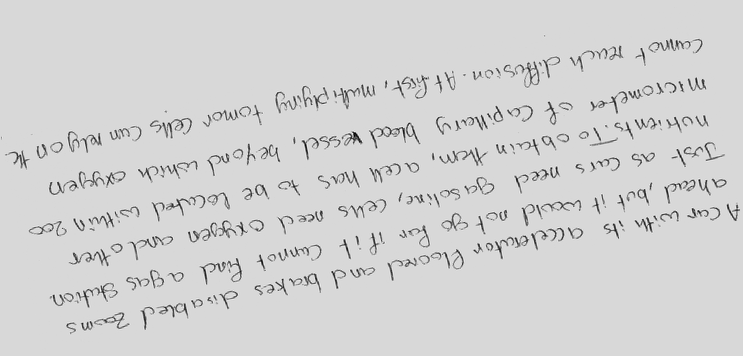 A car with its accelerator floored and brakes disabled zooms
ahead, but it would not go far if it cannot find a gas station
Just as cars need gasoline, cells need oxygen and other
nutrients. To obtain them, a cell has to be located within 200
micrometer of capillary blood vessel, beyond which oxygen
cannot reach diffusion. At first, multiplying tomor cells can rely on the